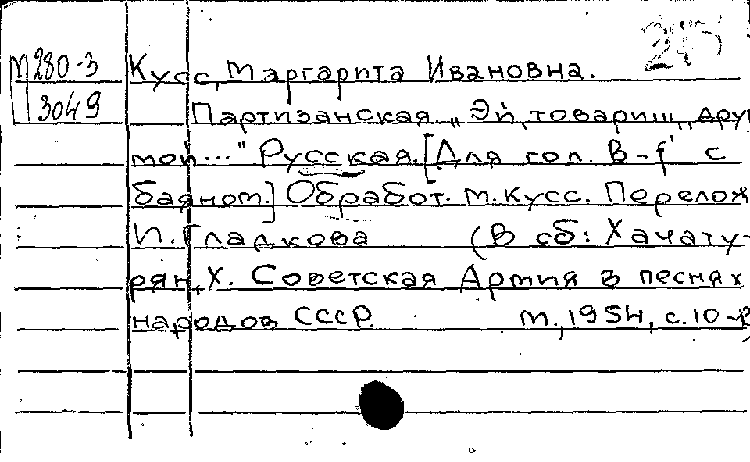 М280-3
3049
Кусс, Маргарита Ивановна.
Партизанская „Эй, товарищ, друг
мой..." Русская. [Для гол. В-f с
баяном.] Обработ. М. Кусс. Перелож.
И. Гладкова (В сб: Хачату-
рян, Х. Советская Армия в песнях
народов СССР. М., 1954, с. 10-